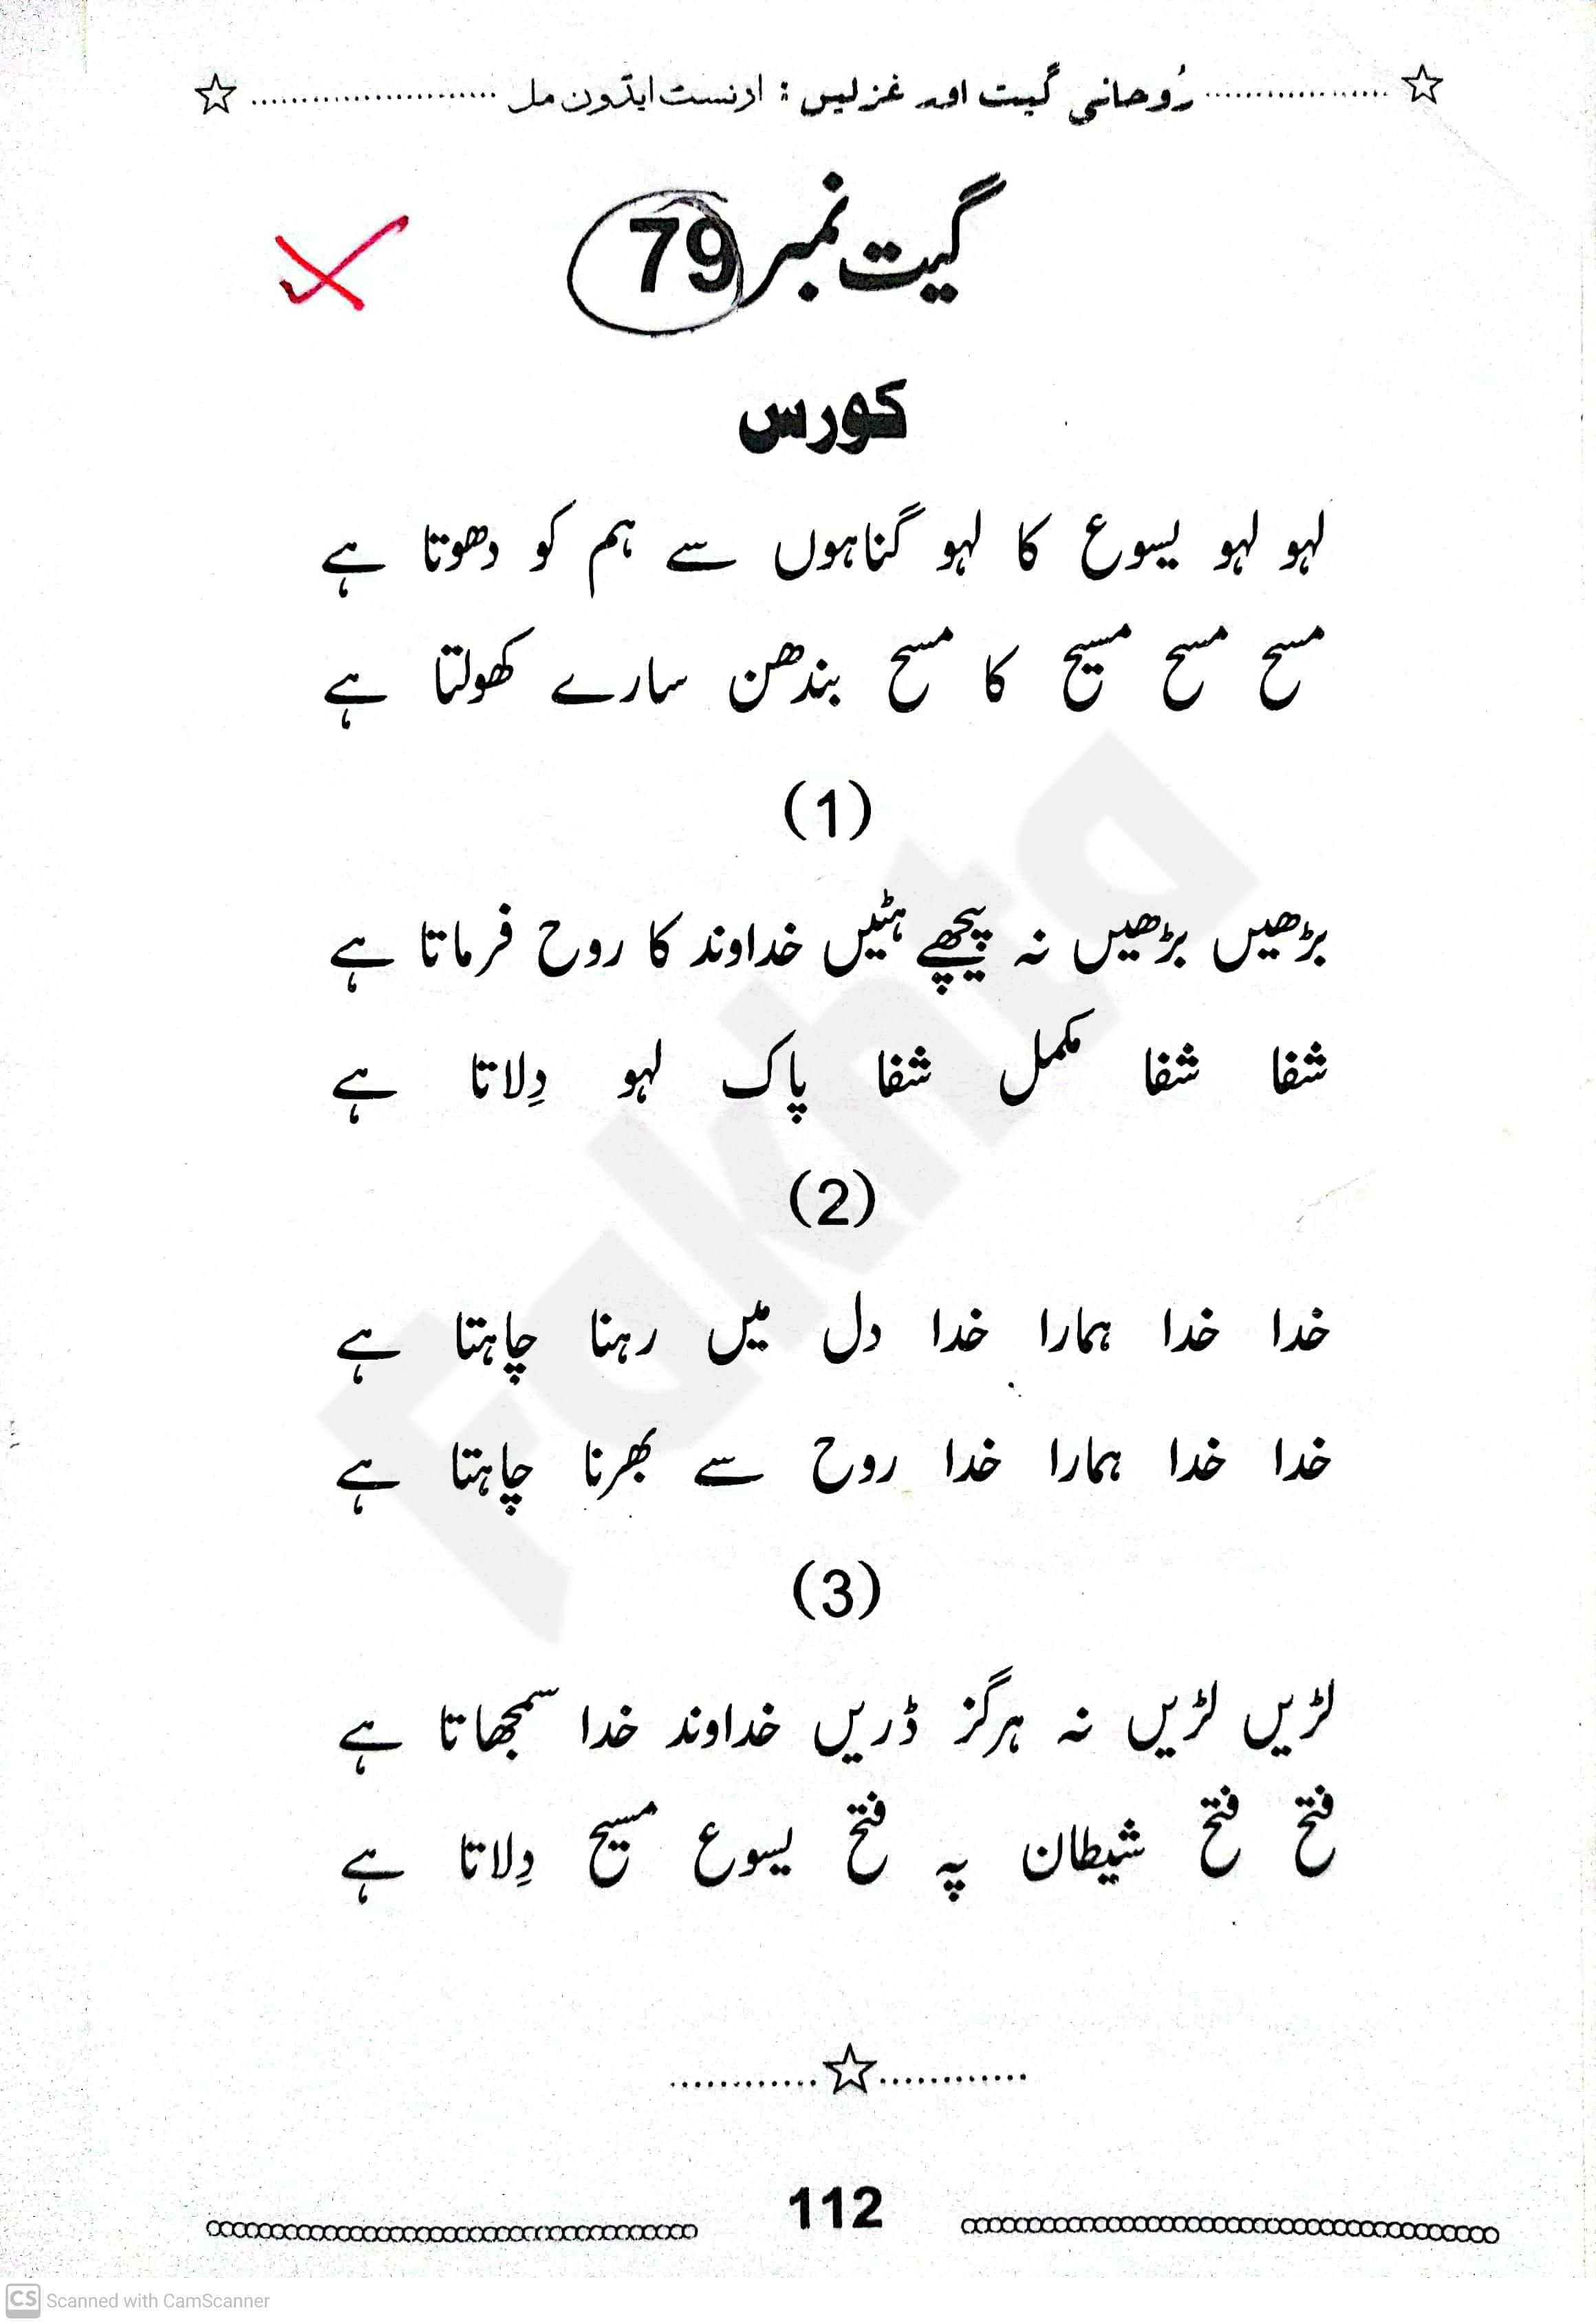 رُوحانی گیت اور غزلیں : ارنسٹ ایڈون مل
گیت نمبر 79
کورس
لہو لہو یسوع کا لہو گناہوں سے ہم کو دھوتا ہے
مسح مسح مسیح کا مسح بندھن سارے کھولتا ہے
(1)
بڑھیں بڑھیں نہ پیچھے ہٹیں خداوند کا روح فرماتا ہے
شفا شفا مکمل شفا پاک لہو دِلاتا ہے
(2)
خدا خدا ہمارا خدا دل میں رہنا چاہتا ہے
خدا خدا ہمارا خدا روح سے بھرنا چاہتا ہے
(3)
لڑیں لڑیں نہ ہرگز ڈریں خداوند خدا سمجھاتا ہے
فتح فتح شیطان پہ فتح یسوع مسیح دِلاتا ہے
112
Fakhta
CS Scanned with CamScanner